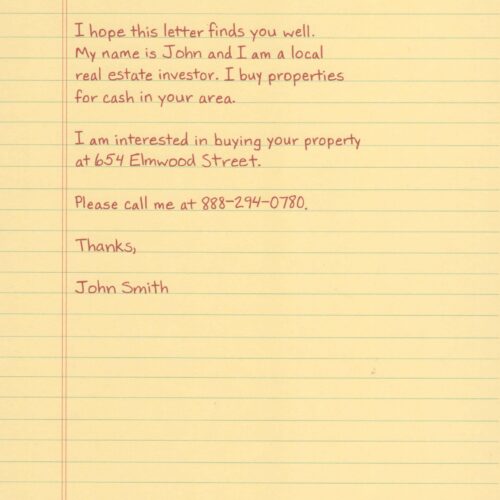 I hope this letter finds you well.
My name is John and I am a local
real estate investor. I buy properties
for cash in your area.
I am interested in buying your property
at 654 Elmwood Street.
Please call me at 888-294-0780.
Thanks,
John Smith